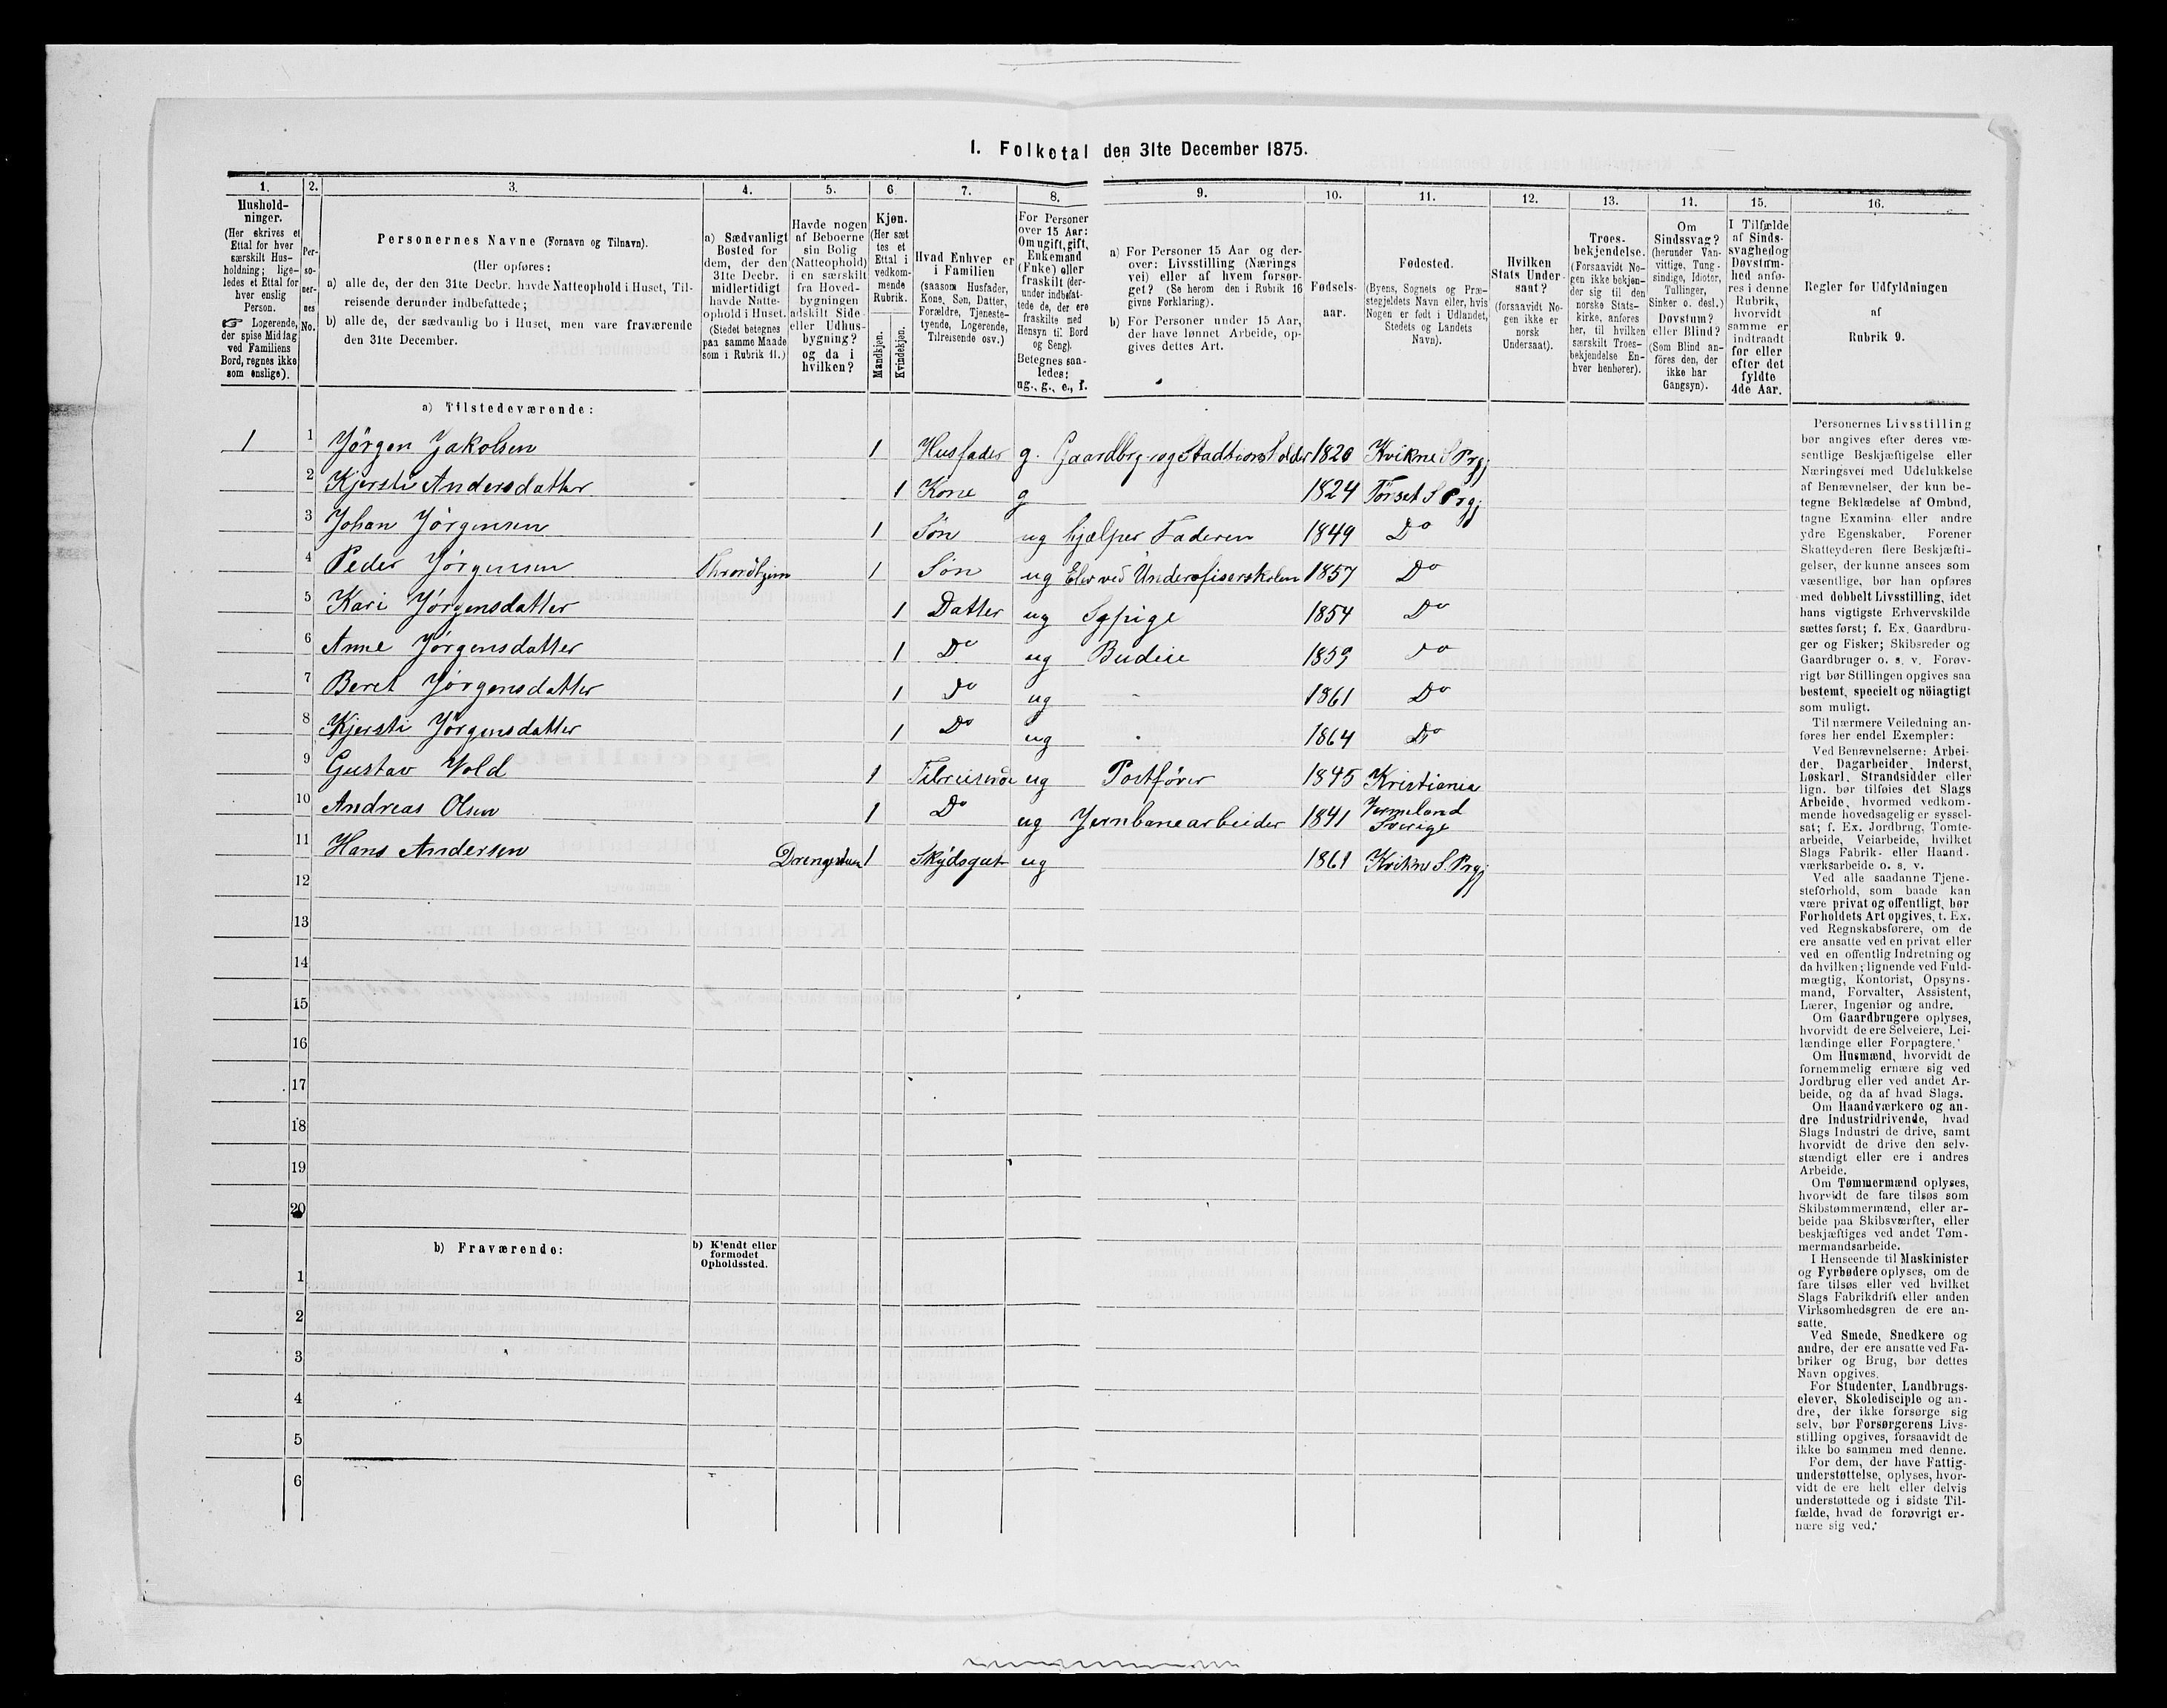 I. Folketal den 31te December 1875.
1.
2.
3.
4.
5.
6
7.
8.
9.
10.
11.
12.
13.
14.
15.
16.
Hushold-
ninger.
(Her skrives et
Ettal for hver
særskilt Hus-
holdning; lige-
ledes et Ettal for
hver enslig
Person.
☞ Logerende,
der spise Middag
ved Familiens
Bord, regnes ikke
som enslige).
Per-
so-
ner-
nes
No.
Personernes Navne (Fornavn og Tilnavn).
(Her opføres:
a) alle de, der den 31te Decbr. havde Natteophold i Huset, Til-
reisende derunder indbefattede;
b) alle de, der sædvanlig bo i Huset, men vare fraværende
den 31te December.
a) Sædvanligt
Bosted for
dem, der den
31te Decbr.
midlertidigt
havde Natte-
ophold i Huset.
(Stedet betegnes
paa samme Maade
som i Rubrik 11.)
Havde nogen
af Beboerne
sin Bolig
(Natteophold)
i en særskilt
fra Hoved-
bygningen
adskilt Side-
eller Udhus-
bygning?
og da i
hvilken?
Kjøn.
(Her sæt
tes et
Ettal i
vedkom-
mende
Rubrik.
Mandkjøn.
Kvindekjøn.
Hvad Enhver er
i Familien
(saasom Husfader,
Kone, Søn, Datter,
Forældre, Tjeneste-
tyende, Logerende,
Tilreisende osv.)
For Personer
over 15 Aar:
Om ugift, gift,
Enkemand
(Enke) eller
fraskilt (der-
under indbefat-
tede de, der ere
fraskilte med
Hensyn til Bord
og Seng).
Betegnes saa-
ledes:
ug., g., e., f.
a) For Personer 15 Aar og der-
over: Livsstilling (Nærings
vei) eller af hvem forsør-
get? (Se herom den i Rubrik 16
givne Forklaring).
b) For Personer under 15 Aar,
der have lønnet Arbeide, op-
gives dettes Art.
Fødsels-
aar.
Fødested.
(Byens, Sognets og Præ-
stegjeldets Navn eller, hvis
Nogen er født i Udlandet,
Stedets og Landets
Navn).
Hvilken
Stats Under-
saat?
(forsaavidt No-
gen ikke er
norsk
Undersaat).
Troes-
bekjendelse.
(Forsaavidt No-
gen ikke bekjen-
der sig til den
norske Stats-
kirke, anføres
her, til hvilken
særskilt Troes-
bekjendelse En-
hver henhører).
Om
Sindssvag?
(herunder Van-
vittige, Tung-
sindige, Idioter,
Tullinger,
Sinker o. desl.)
Døvstum?
eller Blind?
(Som Blind an-
føres den, der
ikke har
Gangsyn).
I Tilfælde
af Sinds-
svaghed og
Døvstum-
hed anfø-
res i denne
Rubrik,
hvorvidt
samme er
indtraadt
før eller
efter det
fyldte
4de Aar.
Regler for Udfyldningen
af
Rubrik 9.
a) Tilstedeværende:
1 1 Jörgen Jakobsen 1 Husfader g. Gaardbr. og Stadtionsholder 1820 Kvikne S Prgj
2 Kjersti Andersdatter 1 Kone g 1824 Tönset S Prgj
3 Johan Jörgensen 1 Søn ug hjelper Faderen 1849 Do
4 Peder Jörgensen Throndhjem 1 Søn ug Elev ved Underofiserskolen 1857 Do
5 Kari Jörgensdatter 1 Datter ug Sypige 1854 Do
6 Anne Jörgensdatter 1 Do ug Budeie 1859 Do
7 Beret Jörgensdatter 1 Do ug 1861 Do
8 Kjersti Jörgensdatter 1 Do ug 1864 Do
9 Gustav Vold 1 Tilreisende ug Postförer 1845 Kristiania
10 Andreas Olsen 1 Do ug Jernbanearbeider 1841 Vermeland Sverige
11 Hans Andersen Drengestuen 1 Skydsgut ug 1861 Kvikne S. Prgj
12
13
14
15
16
17
18
19
20
b) Fraværende:
b) Kjendt eller
formodet
Opholdssted.
1
2
3
4
5
6
Personernes Livsstilling
bør angives efter deres væ-
sentlige Beskjæftigelse eller
Næringsvei med Udelukkelse
af Benævnelser, der kun be-
tegne Beklædelse af Ombud,
tagne Examina eller andre
ydre Egenskaber. Forener
Skatteyderen flere Beskjæfti-
gelser, der kunne ansees som
væsentlige, bør han opføres
med dobbelt Livsstilling, idet
hans vigtigste Erhvervskilde
sættes først; f. Ex. Gaardbru-
ger og Fisker; Skibsreder og
Gaardbruger o. s. v. Forøv-
rigt bør Stillingen opgives saa
bestemt, specielt og nöiagtigt
som muligt.
Til nærmere Veiledning an-
føres her endel Exempler:
Ved Benævnelserne: Arbei-
der, Dagarbeider, Inderst,
Løskarl, Strandsidder eller
lign. bør tilføies det Slags
Arbeide, hvormed vedkom-
mende hovedsagelig er syssel-
sat; f. Ex. Jordbrug, Tomte-
arbeide, Veiarbeide, hvilket
Slags Fabrik- eller Haand-
værksarbeide o. s. v.
Ved alle saadanne Tjene-
steforhold, som baade kan
være privat og offentligt, bør
Forholdets Art opgives, t. Ex.
ved Regnskabsførere, om de
ere ansatte ved en privat eller
ved en offentlig Indretning og
da hvilken; lignende ved Fuld-
mægtig, Kontorist, Opsyns-
mand, Forvalter, Assistent,
Lærer, Ingeniør og andre.
Om Gaardbrugere oplyses,
hvorvidt de ere Selveiere, Lei-
lændinge eller Forpagtere.
Om Husmænd, hvorvidt de
fornemmelig ernære sig ved
Jordbrug eller ved andet Ar-
beide, og da af hvad Slags.
Om Haandværkere og an-
dre Industridrivende, hvad
Slags Industri de drive, samt
hvorvidt de drive den selv-
stændigt eller ere i andres
Arbeide.
Om Tømmermænd oplyses,
hvorvidt de fare tilsøs som
Skibstømmermænd, eller ar-
beide paa Skibsværfter, eller
beskjæftiges ved andet Tøm-
mermandsarbeide.
I Henseende til Maskinister
og Fyrbødere oplyses, om de
fare tilsøs eller ved hvilket
Slags Fabrikdrift eller anden
Virksomhedsgren de ere an-
satte.
Ved Smede, Snedkere og
andre, der ere ansatte ved Fa-
briker og Brug, bør dettes
Navn opgives.
For Studenter, Landbrugs-
elever, Skoledisciple og an-
dre, der ikke forsørge sig
selv, bør Forsørgerens Livs-
stilling opgives, forsaavidt de
ikke bo sammen med denne.
For dem, der have Fattig-
understøttelse, oplyses, hvor-
vidt de ere helt eller delvis
understøttede og i sidste Til-
fælde, hvad de forøvrigt er-
nære sig ved.